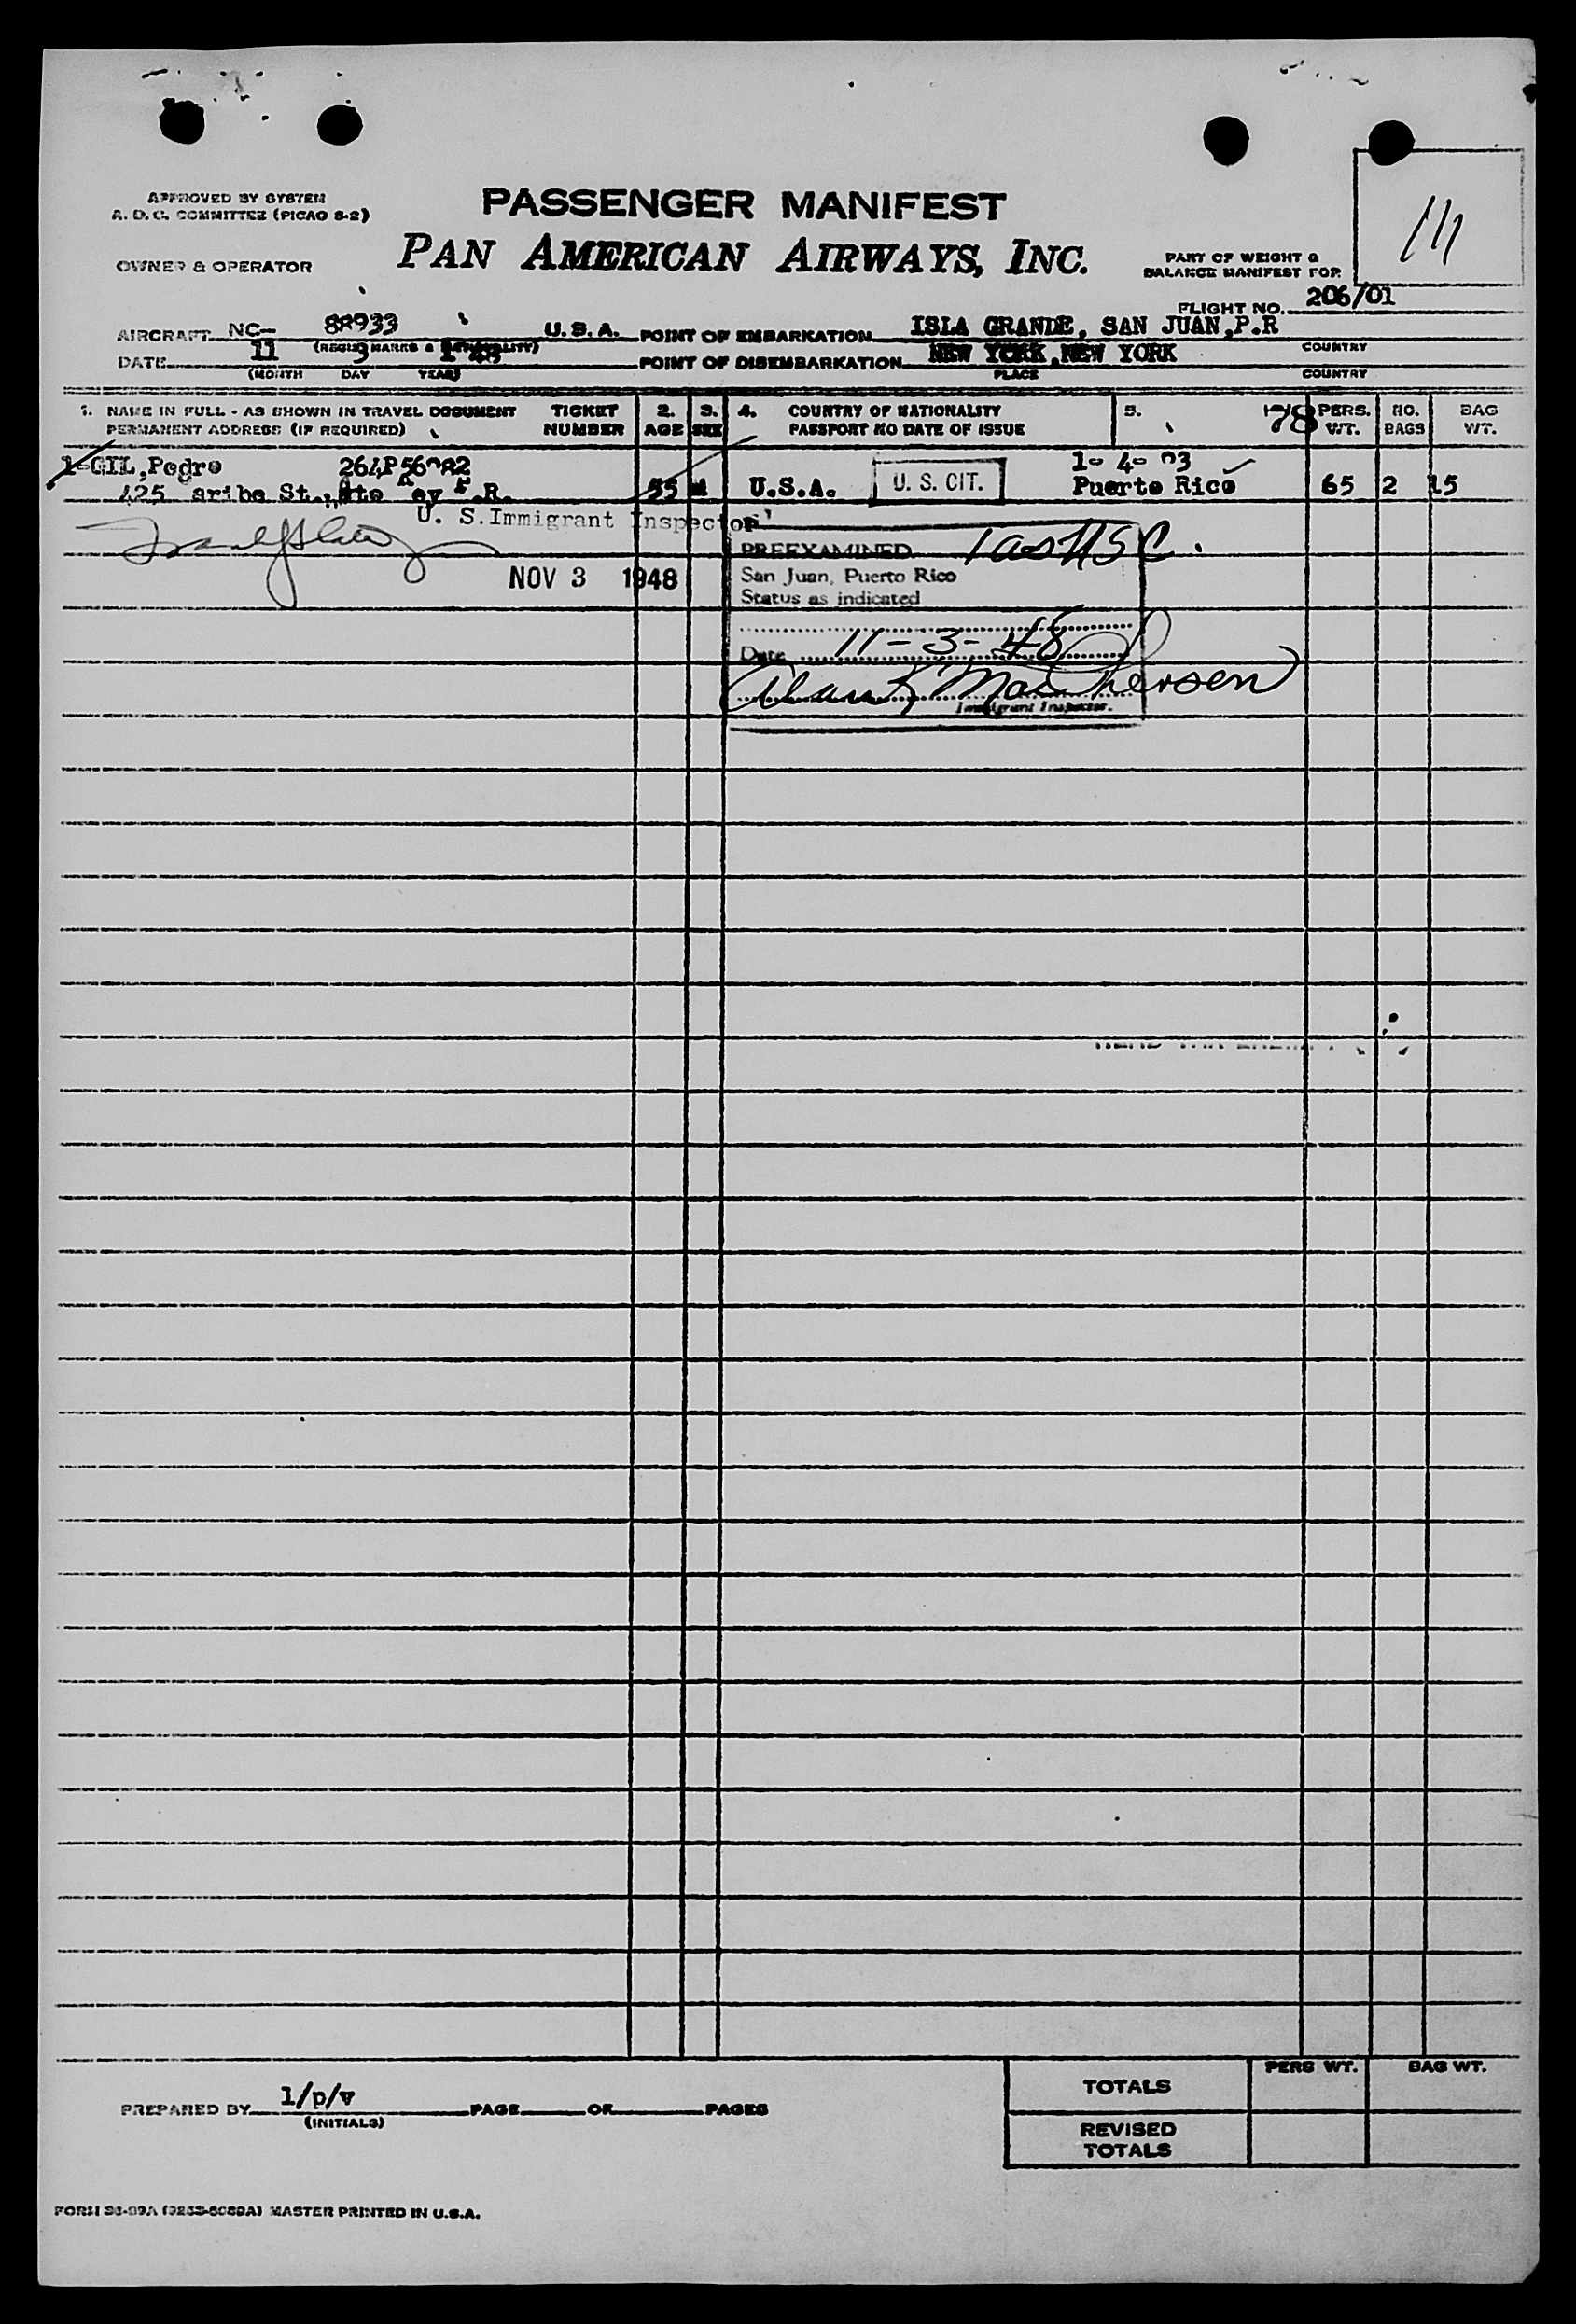 APPROVED BY SYSTEM
A. O. C. COMMITTEE (PICAO S-2)
OWNER & OPERATOR
PASSENGER MANIFEST
PAN AMERICAN AIRWAYS, INC.
PART OF WEIGHT &
BALANCE MANIFEST FOR
FLIGHT NO. 206/01
AIRCRAFT NC- 88933 U.S.A. POINT OF EMBARKATION ISLA GRANDE, SAN JUAN,P.R
COUNTRY
DATE 11 3 POINT OF DISEMBARKATION NEW YORK,NEW YORK
(MONTH DAY YEAR) PLACE COUNTRY
1. NAME IN FULL - AS SHOWN IN TRAVEL DOCUMENT TICKET 2. 3. 4. COUNTRY OF NATIONALITY 5. 78 PERS. NO. BAG
PERMANENT ADDRESS (IF REQUIRED) NUMBER AGE SEX PASSPORT NO DATE OF ISSUE WT. BAGS WT.
1-GIL,Pedro 1- 4-
425 aribe St., 55 M U.S.A. U. S. CIT. Puerto Rico 65 2 15
U. S. Immigrant Inspector
PREEXAMINED
San Juan, Puerto Rico
NOV 3 1948
Status as indicated
Date 11-3-48
Immigrant Inspector.
PREPARED BY 1/p/v PAGE OF PAGES
(INITIALS)
PERS WT. BAG WT.
TOTALS
REVISED
TOTALS
MASTER PRINTED IN U.S.A.